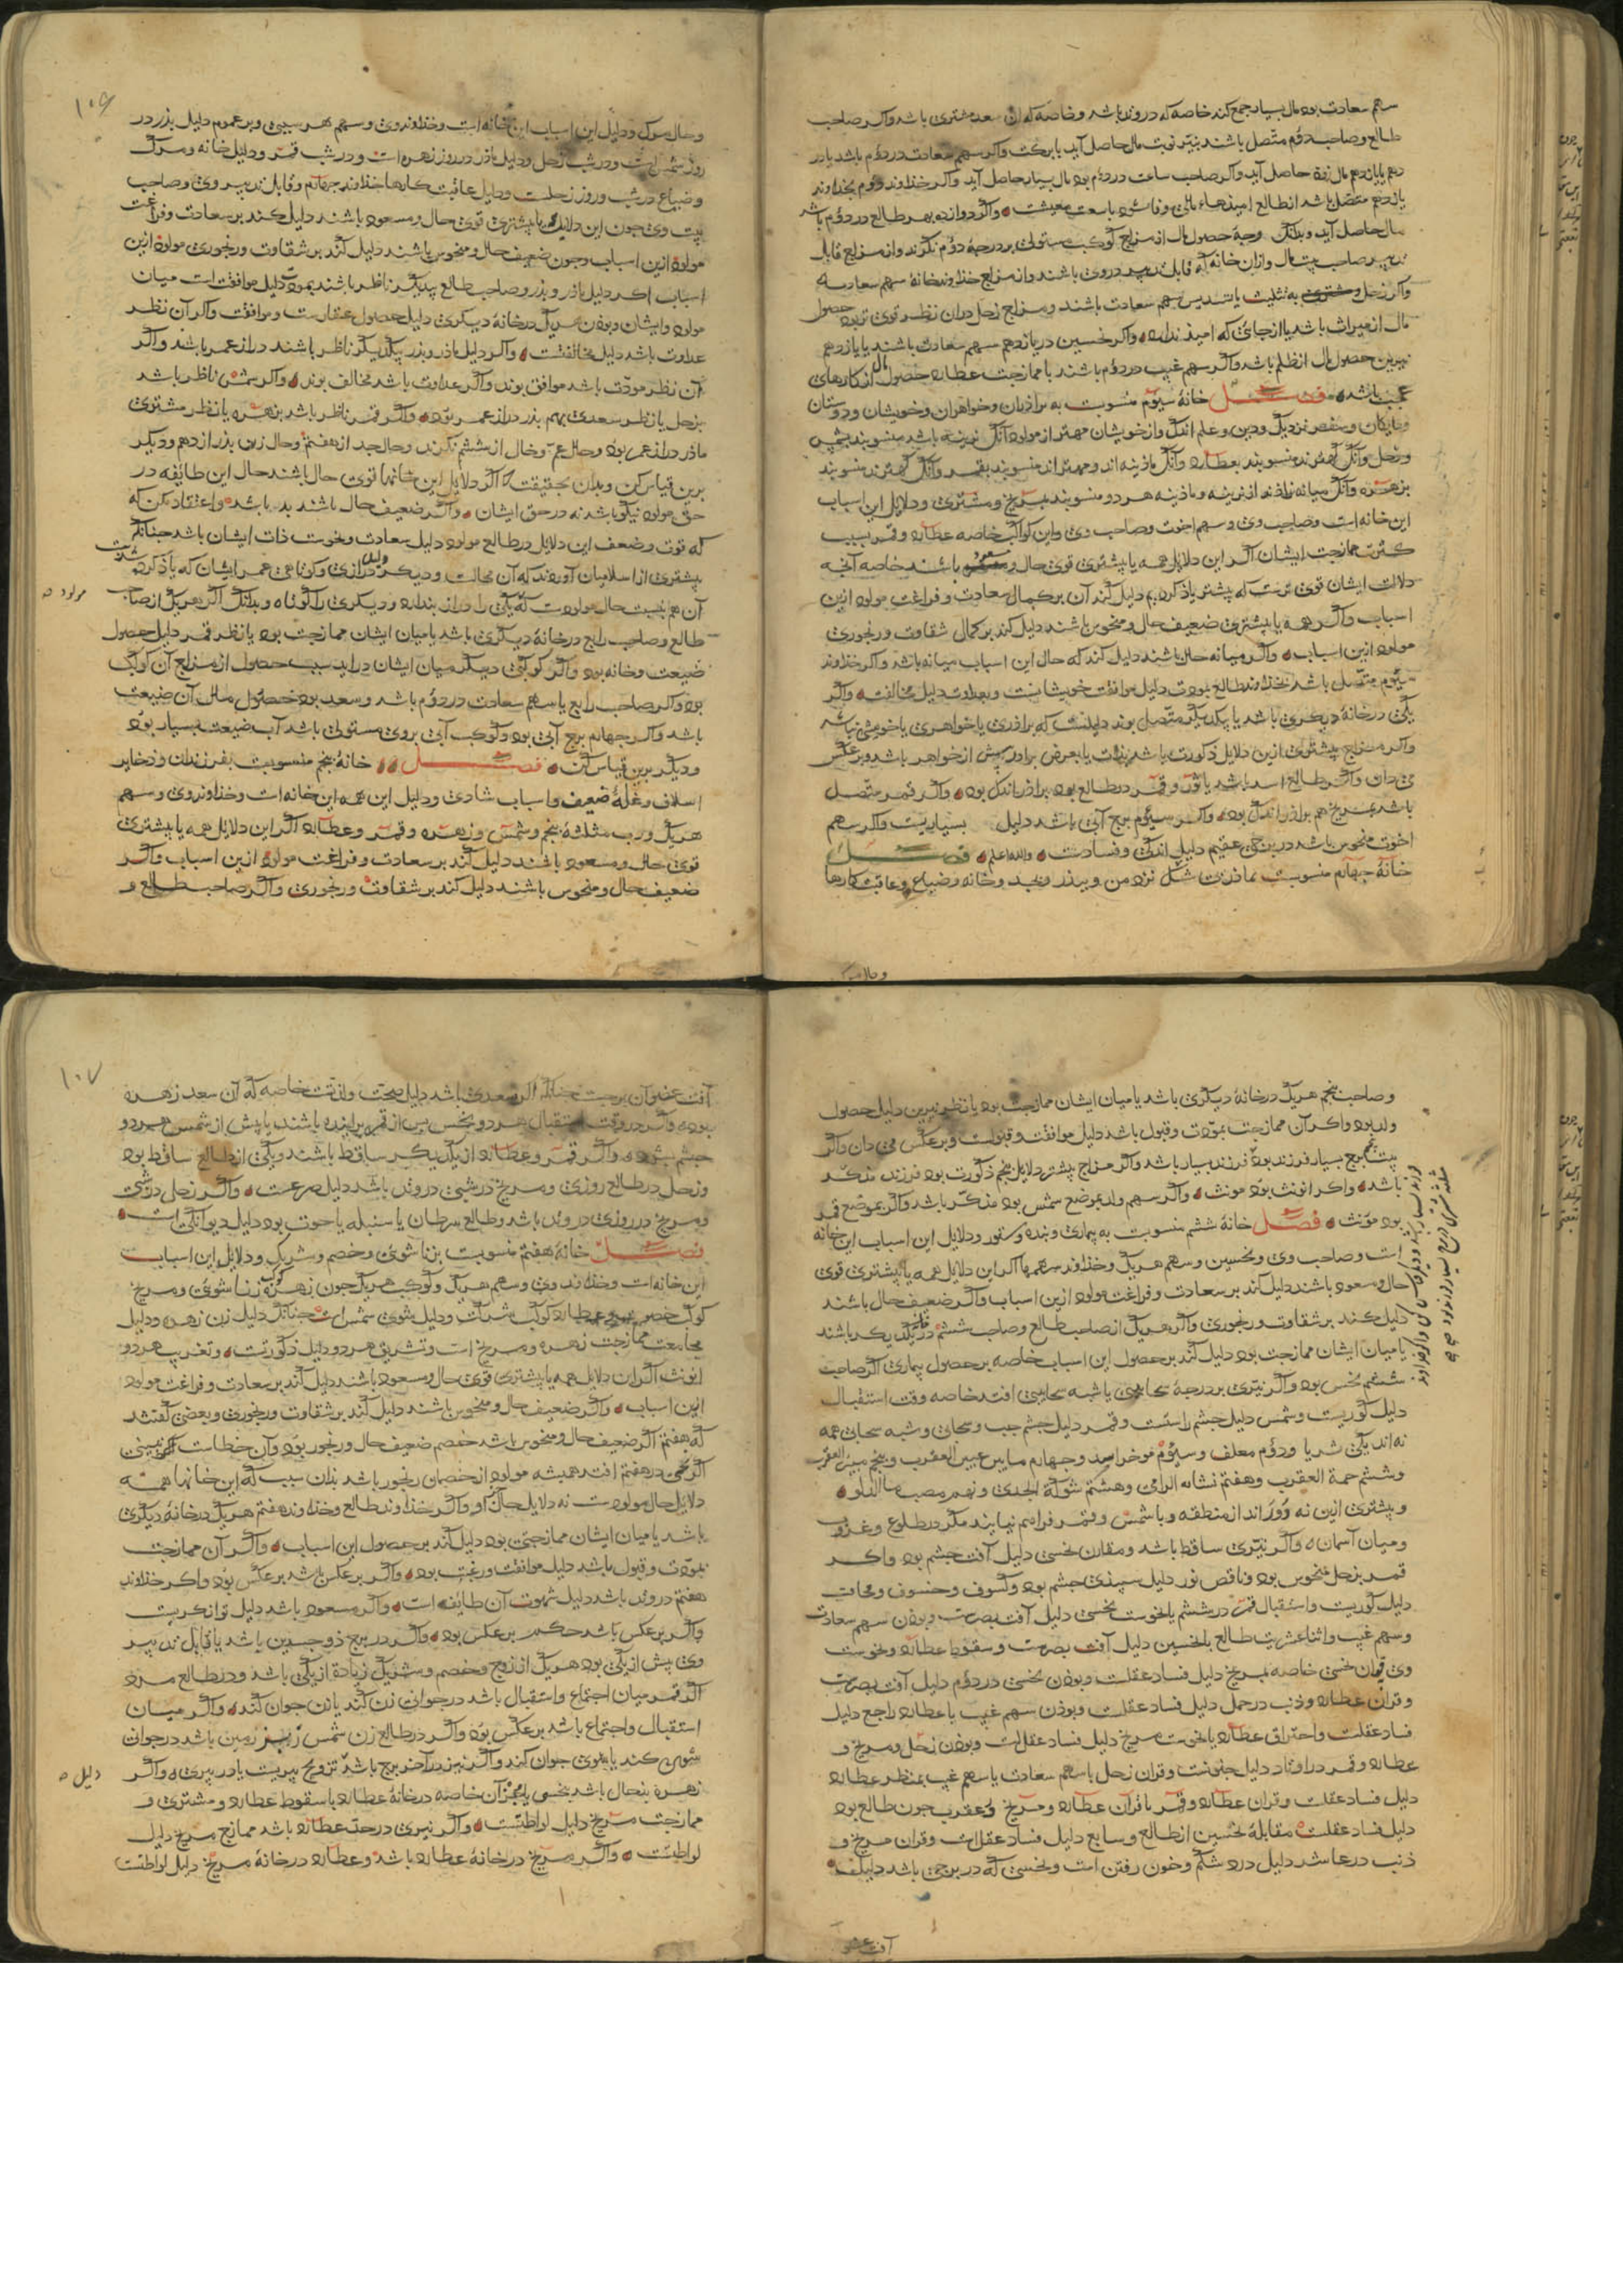 سهم سعادت بود مال بسیار جمع کند خاصه که در وتد باشد و خاصه که آن سعد مشتری باشد و اکر صاحب
طالع و صاحب دوم متصل باشند نیز نوبت مال حاصل آید با برکت و اکر سهم سعادت در دوم باشد یا در
دهم یا یازدهم مال زود حاصل آید و اکر صاحب ساعت در دوم بود مال بسیار حاصل آید و اکر خداوند دوم بخداوند
یازدهم متصل باشد از طالع امیدهاء مالی وفا شود با سعت معیشت و اکر دوازده بهر طالع در دوم باشد
مال حاصل آید و بدانک وجه حصول مال از مزاج کوکب مستولی بر درجه دوم نکرند و از مزاج قابل
تدبیر صاحب بیت مال و از آن خانه که قابل تدبیر در وی باشند و از مزاج خداوند خانه سهم سعادت
و اکر زحل و مشتری به تثلیث یا تسدیس سهم سعادت باشند و مزاج زحل در آن نظر قوی تر بود حصول
مال از میراث باشد یا از جائی که امید ندارد و اکر نحسین در یازدهم سهم سعادت باشند یا یازدهم
نیرین حصول مال از ظلم باشد و اکر سهم غیب در دوم باشد با ممازجت عطارد حصول مال از کارهای
عجیب باشد فصل خانه سیوم منسوبست به براذران و خواهران و خویشان و دوستان
و سفر نزدیک و دین و علم اندک و از خویشان مهتر از مولود آنک نرینه باشد منسوبند بشمس
و زحل و آنک کهترند منسوبند بعطارد و آنک ماذینه اند و مهتراند منسوبند بقمر و آنک کهترند منسوبند
بزهره و آنک میانه زاذند از نرینه و ماذینه هر دو منسوبند بمریخ و مشتری و دلایل این اسباب
این خانه است و صاحب وی و سهم اخوت و صاحب وی و این کواکب خاصه عطارد و قمر بسبب
کثرت ممازجت ایشان اکر این دلایل همه یا بیشتری قوی حال و مسعود باشند خاصه آنچه
دلالت ایشان قوی ترست که بیشتر یاذ کردیم دلیل کند آن بر کمال سعادت و فراغت مولود ازین
اسباب و اکر همه یا بیشتری ضعیف حال و منحوس باشند دلیل کند بر کمال شقاوت و رنجوری
مولود ازین اسباب و اکر میانه حال باشند دلیل کند که حال این اسباب میانه باشد و اکر خداوند
سیوم متصل باشد بخداوند طالع بمودت دلیل موافقت خویشانست و بعداوت دلیل مخالفت و اکر
یکی در خانه دیکری باشد یا بیکدیکر متصل بوند دلیلست که براذری یا خواهری یا خویشی باشد
و اکر مزاج بیشتری ازین دلایل ذکورت باشد بذات یا بعرض براذر بیش از خواهر باشد و بر عکس
می دان و اکر طالع اسد باشد یا ثور و قمر در طالع بود براذر اندک بود و اکر قمر متصل
باشد بمریخ هم براذر اندک بود و اکر سیوم برج آبی باشد دلیل بسیاریست و اکر سهم
اخوت منحوس باشد در برجی عقیم دلیل اندکی و فسادست والله اعلم فصل
خانه چهارم منسوبست بماذر بی شک نزد من و ببذر و بجد و خانه و ضیاع و عاقبت کارها
و حال مرک و دلیل این اسباب این خانه است و خداوند وی و سهم هر سببی و بر عموم دلیل بذر در
روز شمس است و در شب زحل و دلیل ماذر در روز زهره است و در شب قمر و دلیل خانه و مرک
و ضیاع در شب و روز زحلست و دلیل عاقبت کارها خداوند چهارم و قابل تدبیر وی و صاحب
بیت وی چون این دلایل یا بیشتری قوی حال و مسعود باشند دلیل کند بر سعادت و فراغت
مولود ازین اسباب و چون ضعیف حال و منحوس باشند دلیل کند بر شقاوت و رنجوری مولود ازین
اسباب اکر دلیل ماذر و بذر و صاحب طالع بیکدیکر ناظر باشند بمودت دلیل موافقت است میان
مولود و ایشان و بودن هر یک در خانه دیکری دلیل حصول عقارست و موافقت و اکر آن نظر
عداوت باشد دلیل مخالفتست و اکر دلیل ماذر و بذر بیکدیکر ناظر باشند دراز عمر باشد و اکر
آن نظر مودت باشد موافق بوند و اکر عداوت باشد مخالف بوند و اکر شمس ناظر باشد
بزحل یا نظر سعدی بهم بذر دراز عمر بود و اکر قمر ناظر باشد بزهره یا نظر مشتری
ماذر دراز عمر بود و حال عم و خال از ششم نکرند و حال جد از هفتم و حال زن بذر از دهم و دیکر
برین قیاس کن و بدان بحقیقت که اکر دلایل این خانها قوی حال باشند حال این طائفه در
حق مولود نیکو باشد نه در حق ایشان و اکر ضعیف حال باشند بد باشد و اعتقاد مکن که
که قوت و ضعف این دلایل در طالع مولود دلیل سعادت و نحوست ذات ایشان باشد چنانک
بیشتری از اسلامیان آورده‌اند که آن محالست و دیکر دلیل درازی و کوتاهی عمر ایشان که یاذ کرده شدست
آن هم بنسبت حال مولودست که یکی را دراز بندارد و دیکری را کوتاه و بدانک اکر هر یک از صاحب
طالع و صاحب رابع در خانه دیکری باشد یا میان ایشان ممازجت بود یا نظر قمر دلیل حصول
ضیعت و خانه بود و اکر کوکبی دیکر میان ایشان درآید سبب حصول از مزاج آن کوکب
بود و اکر صاحب رابع یا سهم سعادت در دوم باشد و سعد بود حصول مال آن ضیعت
باشد و اکر چهارم برج آبی بود و کوکب آبی بر وی مستولی باشد آب ضیعت بسیار بود
و دیکر برین قیاس کن فصل خانه بنجم منسوبست بفرزندان و ذخایر
اسلاف و غله ضیعت و اسباب شادی و دلیل این همه این خانه است و خداوند وی و سهم
هر یک و رب مثلثه بنجم و شمس و زهره و قمر و عطارد اکر این دلایل همه یا بیشتری
قوی حال و مسعود باشند دلیل کند بر سعادت و فراغت مولود ازین اسباب و اکر
ضعیف حال و منحوس باشند دلیل کند بر شقاوت و رنجوری و اکر صاحب طالع و
و صاحب بنجم هر یک در خانه دیکری باشد یا میان ایشان ممازجت بود یا نظر نیرین دلیل حصول
ولد بود و اکر آن ممازجت بمودت و قبول باشد دلیل موافقت و قبولست و بر عکس می دان و اکر
بیت بنجم برج بسیار فرزند بود فرزند بسیار باشد و اکر مزاج بیشتر دلایل بنجم ذکورت بود فرزند مذکر
باشد و اکر انوثت بود مونث و اکر سهم ولد بموضع شمس بود مذکر باشد و اکر بموضع قمر
بود مونث فصل خانه ششم منسوبست به بیماری و بنده و ستور و دلایل این اسباب این خانه
است و صاحب وی و نحسین و سهم هر یک و خداوند سهمها اکر این دلایل همه یا بیشتری قوی
حال و مسعود باشند دلیل کند بر سعادت و فراغت مولود ازین اسباب و اکر ضعیف حال باشند
دلیل کند بر شقاوت و رنجوری و اکر هر یک از صاحب طالع و صاحب ششم در خانه یکدیکر باشند
یا میان ایشان ممازجت بود دلیل کند بر حصول این اسباب خاصه بر حصول بیماری اکر صاحب
ششم نحس بود و اکر نیری بر درجه سحابی یا شبه سحابی افتد خاصه وقت استقبال
دلیل کوریست و شمس دلیل چشم راستست و قمر دلیل چشم چب و سحابی و شبه سحابی همه
نه اند یکی ثریا و دوم معلف و سیوم موخر اسد و چهارم مابین عینی العقرب و بنجم
و ششم حمة العقرب و هفتم نشابه الرامی و هشتم شوکة الجدی و نهم مصب ماء الدلو
و بیشتری ازین نه دورند از منطقه و با شمس و قمر فراهم نیایند مکر در طلوع و غروب
و میان آسمان و اکر نیری ساقط باشد و مقارن نحسی دلیل آفت چشم بود و اکر
قمر بزحل منحوس بود و ناقص نور دلیل سبیدی چشم بود و کسوف و خسوف و محاق
دلیل کوریست و استقبال قمر در ششم با نحوست نحسی دلیل آفت بصرست و بودن سهم سعادت
و سهم غیب و اثنا عشریت طالع با نحسین دلیل آفت بصرست و سقوط عطارد و نحوست
وی بقران نحسی خاصه مریخ دلیل فساد عقلست و بودن نحسی در دوم دلیل آفت بصرست
و قران عطارد و ذنب در حمل دلیل فساد عقلست و بوذن سهم غیب با عطارد راجع دلیل
فساد عقلست و احتراق عطارد با نحوست مریخ دلیل فساد عقلست و بودن زحل و مریخ و
عطارد و قمر در اوتاد دلیل جنونست و قران زحل با سهم سعادت یا سهم غیب بمنظر عطارد
دلیل فساد عقلست و قران عطارد و قمر یا قران عطارد و مریخ و عقرب چون طالع بود
دلیل فساد عقلست مقابله نحسین از طالع و سابع دلیل فساد عقلست و قران مریخ و
ذنب در عاشر دلیل درد شکم و خون رفتن است و نحسی که در برجی باشد دلیلست
آفت عضو آن برجست چنانک اکر سعدی باشد دلیل صحت و لذتست خاصه که آن سعد زهره
بود و اکر در وقت استقبال هر دو نحس بس از قمر برآینده باشند یا بیش از شمس هر دو
چشم بشود و اکر قمر و عطارد از یکدیکر ساقط باشند و یکی از طالع ساقط بود
و زحل در طالع روزی و مریخ در شبی در وتد باشد دلیل صرعست و اکر زحل در شبی
و مریخ در روزی در وتد باشد و طالع سرطان یا سنبله یا حوت بود دلیل دیوانکی است
فصل خانه هفتم منسوبست بزناشوئی و خصم و شریک و دلایل این اسباب
این خانه است و خداوند وی و سهم هریک و کوکب هر یک چون زهره کوکب زناشوئی و مریخ
کوکب خصم و عطارد کوکب شرکت و دلیل شوی شمس است چنانک دلیل زن زهره و دلیل
مجامعت ممازجت زهره و مریخ است و تشریق هر دو دلیل ذکورتست و تغریب هر دو
انوثت اکر این دلایل همه یا بیشتری قوی حال و مسعود باشند دلیل کند بر سعادت و فراغت مولود
ازین اسباب و اکر ضعیف حال و منحوس باشند دلیل کند بر شقاوت و رنجوری و بعضی کفتند
که هفتم اکر ضعیف حال و منحوس باشد خصم ضعیف حال و رنجور بود و آن خطاست
اکر نحسی در هفتم افتد همیشه مولود از خصمان رنجور باشد بدان سبب که این خانها همه
دلایل حال مولودست نه دلایل حال او و اکر خداوند طالع و خداوند هفتم هر یک در خانه دیکری
باشد یا میان ایشان ممازجتی بود دلیل کند بر حصول این اسباب و اکر آن ممازجت
بمودت و قبول باشد دلیل موافقت و رغبت بود و اکر بر عکس باشد بر عکس بود و اکر خداوند
هفتم در وتد باشد دلیل شهوت آن طائفه است و اکر مسعود باشد دلیل توانکریست
و اکر بر عکس باشد حکم بر عکس بود و اکر در برج ذوجسدین باشد یا قابل تدبیر
وی بیش از یکی بود هر یک از زوج و خصم و شریک زیادة از یکی باشد و در طالع مرد
اکر قمر میان اجتماع و استقبال باشد در جوانی زن کند یا زن جوان کند و اکر میان
استقبال و اجتماع باشد بر عکس بود و اکر در طالع زن شمس زبر زمین باشد در جوانی
شوی کند یا شوی جوان کند و اکر نیز در آخر برج باشد تزویج ببریست یا در بیری و اکر
زهره بدحال باشد بنحسی یا بجز آن خاصه در خانه عطارد با سقوط عطارد و مشتری و
ممازجت مریخ دلیل لواطتست و اکر نیری در حد عطارد باشد ممازج مریخ دلیل
لواطتست و اکر مریخ در خانه عطارد باشد و عطارد در خانه مریخ دلیل لواطتست